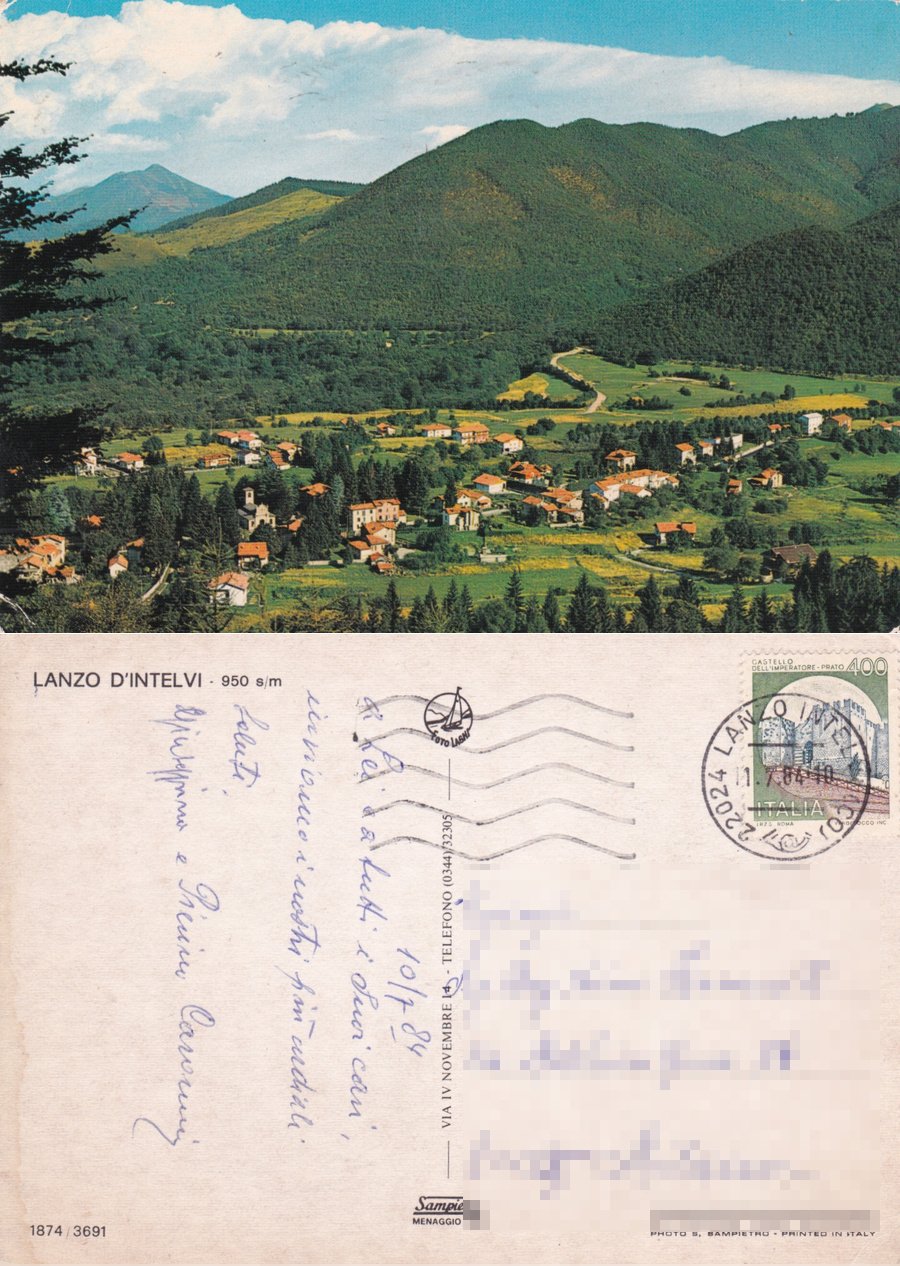 LANZO D'INTELVI - 950 s/m
CASTELLO
DELL'IMPERATORE - PRATO 400
ITALIA
22024 LANZO INTELVI (CO)
11.7.84-10
FOTO LAGHI
10/7 84
a Lei e a tutti i Suoi cari,
inviamo i nostri più cordiali
Saluti.
Giuseppina e Pierino
VIA IV NOVEMBRE 14 - TELEFONO (0344) 32305
Sampie
MENAGGIO
1874/3691
PHOTO S. SAMPIETRO - PRINTED IN ITALY